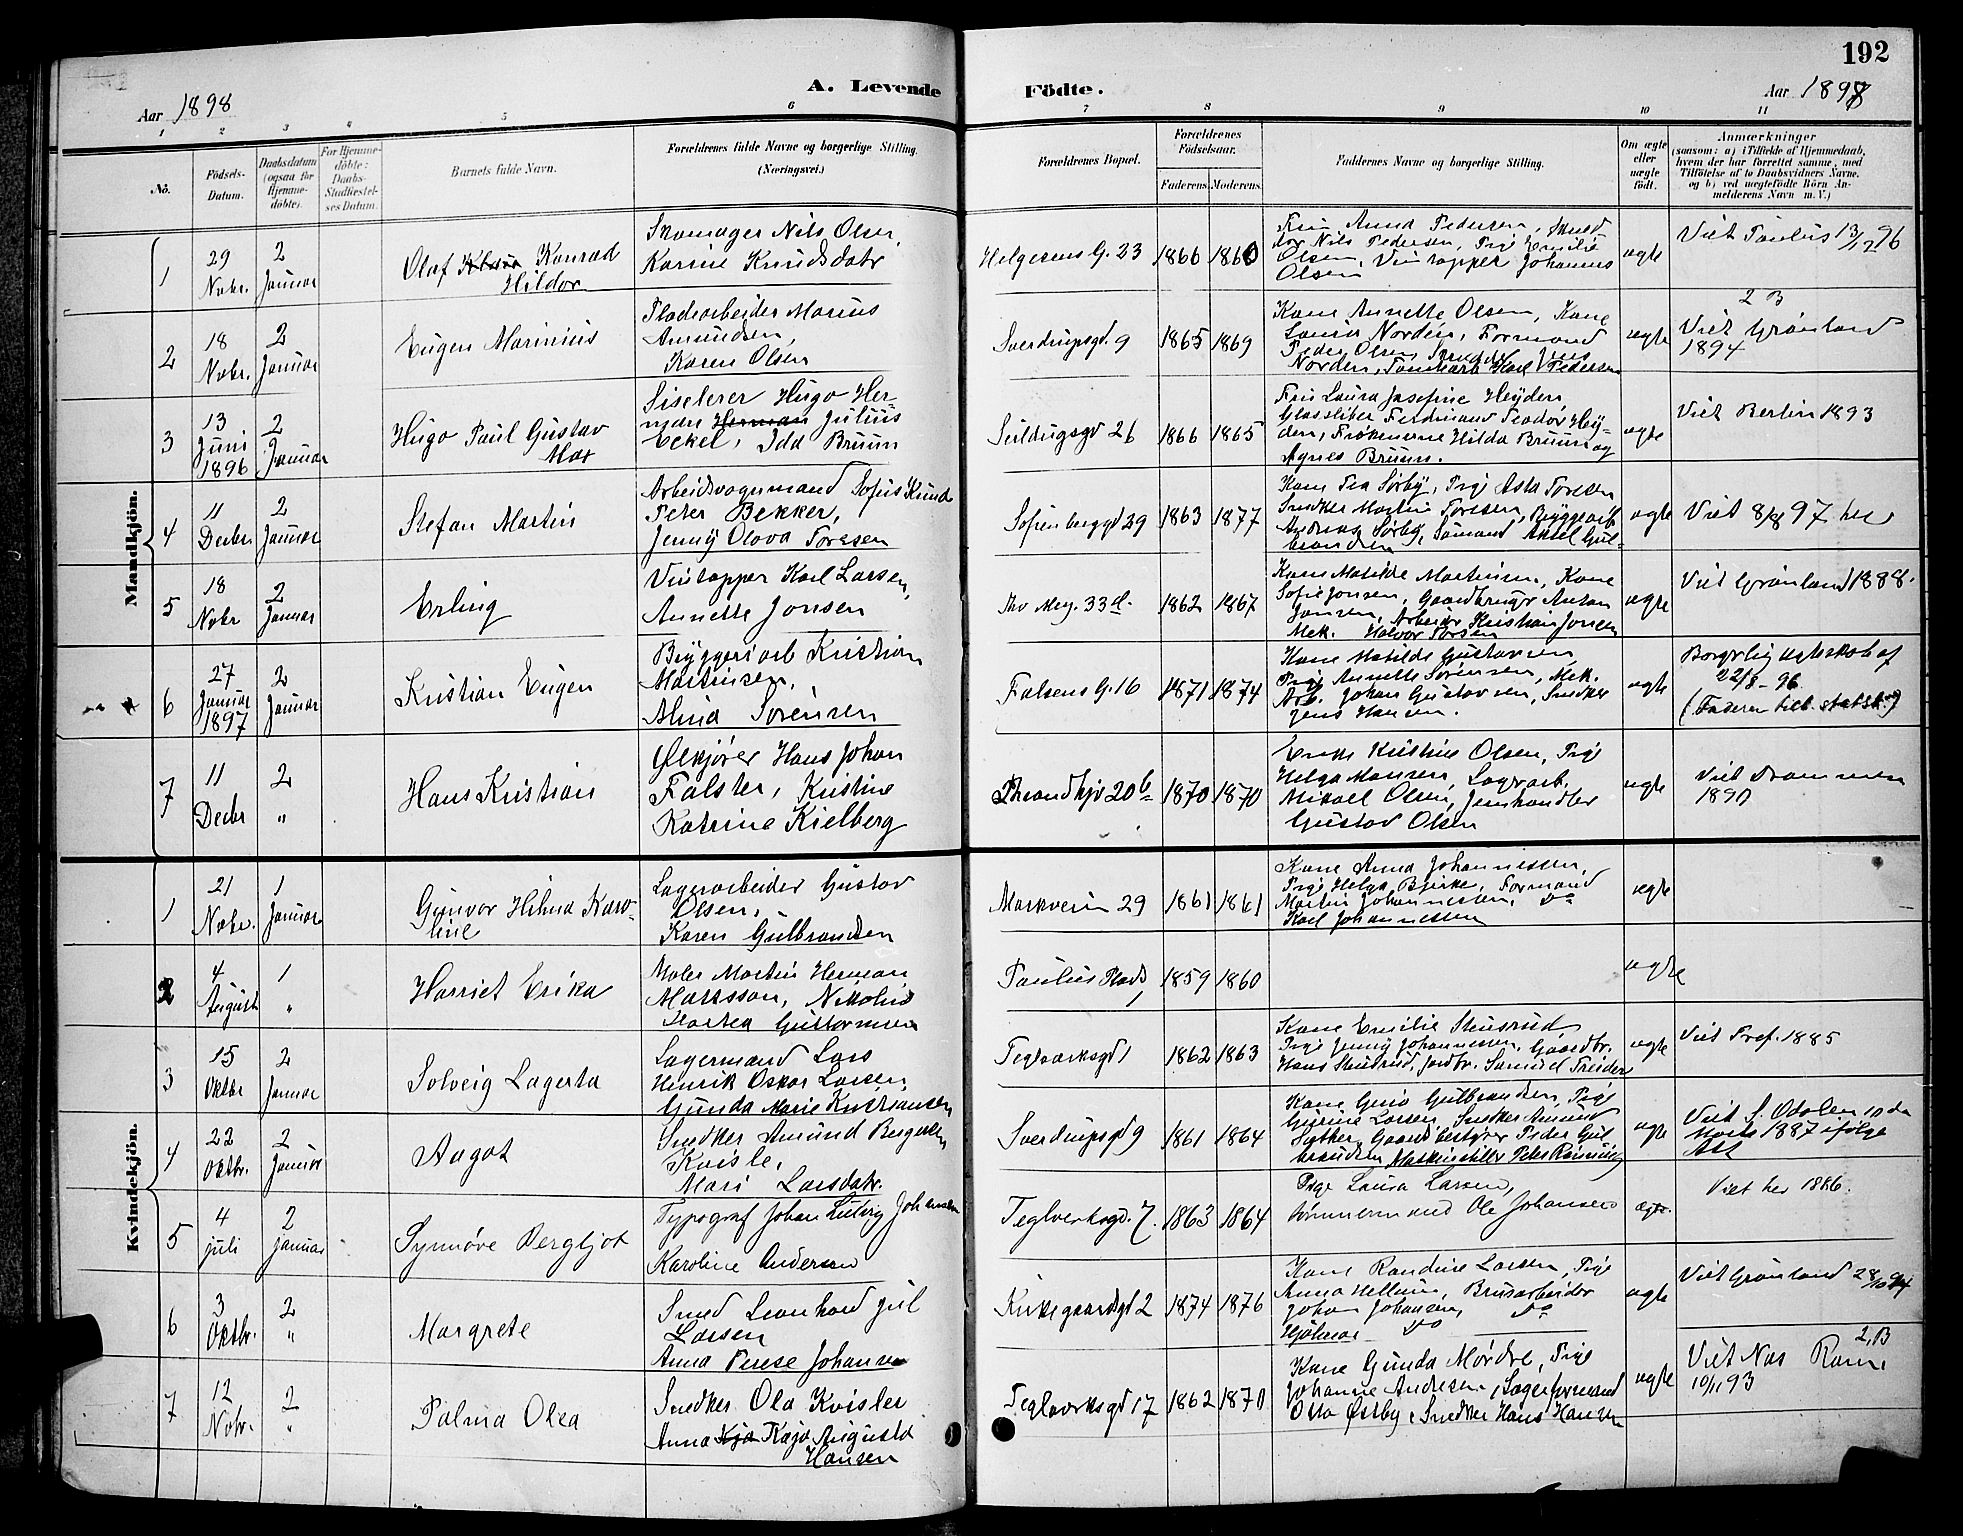 192
A. Levende Födte.
Aar 1898
Aar 1898
1 2 3 4 5 6 7 8 9 10 11
No.
Födsels-Datum.
Daabsdatum (ogsaa for Hjemme-döbte).
For Hjemme-döbte: Daabs-Stadfæstel-ses Datum.
Barnets fulde Navn.
Forældrenes fulde Navne og borgerlige Stilling.
(Næringsvei.)
Forældrenes Bopæl.
Forældrenes Födselsaar.
Faderens. Moderens.
Faddernes Navne og borgerlige Stilling.
Om ægte eller uægte födt.
Anmærkninger
(saasom: a) i Tilfælde af Hjemmedaab,
hvem der har forrettet samme, med
Tilföielse af to Daabsvidners Navne.
og b) ved uægtefödte Börn An-
melderens Navn m. V.)
Mandkjön.
1
29 Nobr.
2 Januar
Olaf Konrad
Hildor
Skomager Nils Olsen,
Karine Knudsdatr
Helgesens G. 23
1866 1860
Fru Anna Pedersen, Sned-
ker Nils Pedersen, Pige Emilie
Olsen, Vintapper Johannes
Olsen
ægte
Viet Paulus 13/12 96
2
18 Nobr.
2 Januar
Eugen Marinius
Pladearbeider Marius
Amundsen,
Karen Olsen
Sverdrupsgd. 9
1865 1869
Kone Annette Olsen, Kone
Laura Norden, Formand
Peder Olsen, Snedker Jens
Norden, Karl Pedersen
ægte
2 B
Viet Grønland
1894
3
13 Juni 1896
2 Januar
Hugo Paul Gustav
Max
Siselerer Hugo Her-
man Herman Julius
Eckel, Ida Bruun
Seildugsgd 26
1866 1865
Fru Laura Josefine Heyden,
Glassliber Ferdinand Teodor Hey-
den, Frøknerne Hilda Bruun og
Agnes Bruun.
ægte
Viet Berlin 1893
4
11 Decbr
2 Januar
Stefan Martin
Arbeidsvognmand Sofus Knud
Peter Bekker,
Jenny Olava Toresen
Sofienberggd 29
1863 1877
Kone Tea Sørby, Pige Asta Toresen
Snedker Martin Toresen, Bryggearb
Andreas Sørby, Sømand Aksel Gul-
brandsen
ægte
Viet 8/8 97 her
5
18 Nobr
2 Januar
Erling
Vintapper Karl Larsen,
Annette Jonsen
Thv Mey. 33 d.
1862 1867
Kone Matilde Martinsen, Kone
Sofie Jonsen, Gaardbruger Anton
Jonsen, Arbeider Kristian Jonsen
Mek. Halvor Torsen
ægte
Viet Grønland 1888.
6
27 Januar 1897
2 Januar
Kristian Eugen
Bryggeriarb Kristian
Martinsen,
Alma Sørensen
Falsens G. 16
1871 1874
Kone Matilde Gustavsen,
Pige Annette Sørensen, Mek.
Arb. Johan Gustavsen, Snedker
Jens Hansen.
ægte
Borgerlig ægteskab af
22/8 - 96
(Faderen tilh. statsk.)
7
11 Decbr
2 "
Hans Kristian
Ølkjører Hans Johan
Falster, Kristine
Katrine Kielberg
Trondhjv 20 b
1870 1870
Enke Kristine Olsen, Pige
Helga Hansen, Lagerarb.
Mikael Olsen, Jernhandler
Gustav Olsen
ægte
Viet Drammen
1890
Kvindekjön.
1
21 Nobr.
1 Januar
Gunvor Hilma Karo-
line
Lagerarbeider Gustav
Olsen,
Karen Gulbrandsen
Markveien 29
1861 1861
Kone Anna Johannessen,
Pige Helga Bjerke, Formand
Martin Johannessen, do
Karl Johannessen
ægte
2
4 August
1 "
Harriet Erika
Maler Martin Herman
Marksson, Nikoline
Martea Gustormsen
Paulus Plads
1
1859 1860
ægte
3
15 Oktbr
2 Januar
Solveig Lagerta
Lagermand Lars
Henrik Oskar Larsen,
Gunda Marie Kristiansen
Teglverksgd 1
1862 1863
Kone Emilie Stensrud
Pige Jenny Johannessen, Gaardbr.
Hans Stensrud, Jordbr. Samuel Treider
ægte
Viet Tref. 1885
4
22 Oktbr.
2 Januar
Aagot
Snedker Amund Bergersen
Kvisle,
Mari Larsdatr.
Sverdrupsgd 9
1861 1864
Kone Guro Gulbrandsen, Pige
Gurine Larsen, Snedker Amund
Sæther, Gaardbestyrer Peder Gul
brandsen
ægte
Viet S. Odalen 10 de
Marts 1887 ifølge
Att
5
4 juli
2 januar
Synnøve Bergljot
Typograf Johan Ludvig Johansen
Karoline Andersen
Teglverksgd. 7.
1863 1864
Pige Laura Larsen,
tømmermand Ole Johansen
ægte.
Viet her 1886.
6
3 Oktbr.
2 "
Margrete
Smed Leonhard Jul
Larsen
Anna Terese Johansen
Kirkegaardsgd 2
1874 1876
Kone Randine Larsen, Pige
Anna Hellum, Brusarbeider
Johan Johansen, do
Hjalmar do
ægte
Viet Grønland 28/10 94
7
12 Nobr.
2 "
Palma Olea
Snedker Ola Kvisler
Anna Kaja Augusta
Hansen
Teglverksgd 17
1862 1870
Kone Gunda Mørdre, Pige
Johanne Andresen, Lagerformand
Otto Østby, Snedker Hans Hansen
ægte
2, B
Viet Nas Rom.
10/11 93